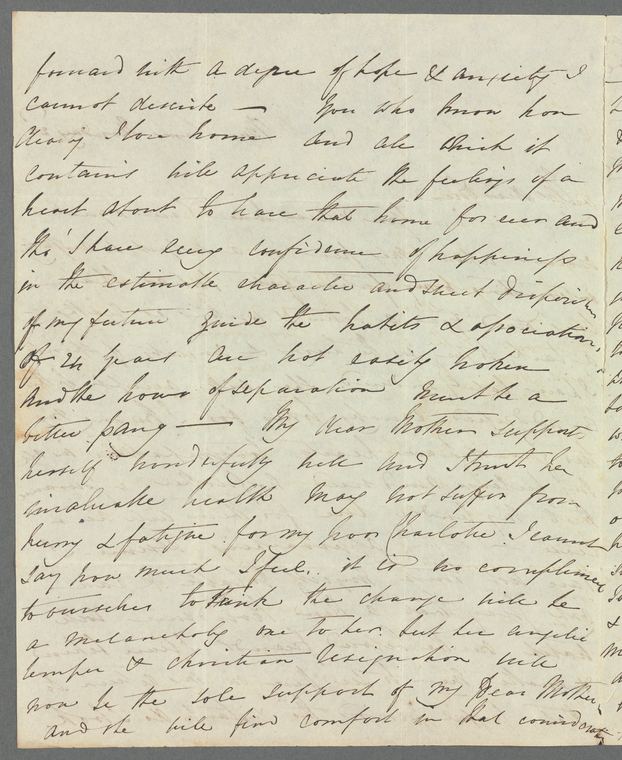 forward with a degree of hope & anxiety I
cannot describe — You who know how
dearly I love home and all which it
contains will appreciate the feelings of a
heart about to leave that home for ever and
tho' I have every confidence of happiness
in the estimable character and sweet disposition
of my future guide the habits & associations
of 24 years are not easily broken
and the hour of separation must be a
bitter pang — My dear Mother supports
herself wonderfully well and I trust her
invaluable health may not suffer from
hurry & fatigue. for my poor Charlotte I cannot
say how much I feel. it is no compliment
to ourselves to think the change will be
a melancholy one to her. but her angelic
temper & christian resignation will
now be the sole support of my Dear Mother
and she will find comfort in that consideration